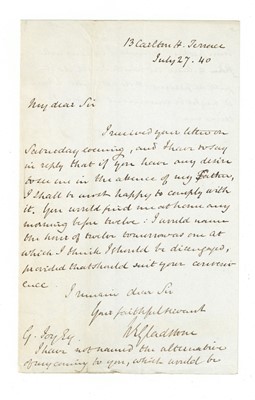 13 Carlton H. Terrace
July 27. 40
My dear Sir
I received your letter on
Saturday evening, and I have to say
in reply that if you have any desire
to see me in the absence of my Father,
I shall be most happy to comply with
it. You would find me at home any
morning before twelve. I would name
the hour of twelve tomorrow as one at
which I think I should be disengaged,
provided that should suit your conveni
ence.
I remain dear Sir
Your faithful servant
WEGladstone
G. Joy Esq.
I have not named the alternative
of my coming to you, which would be